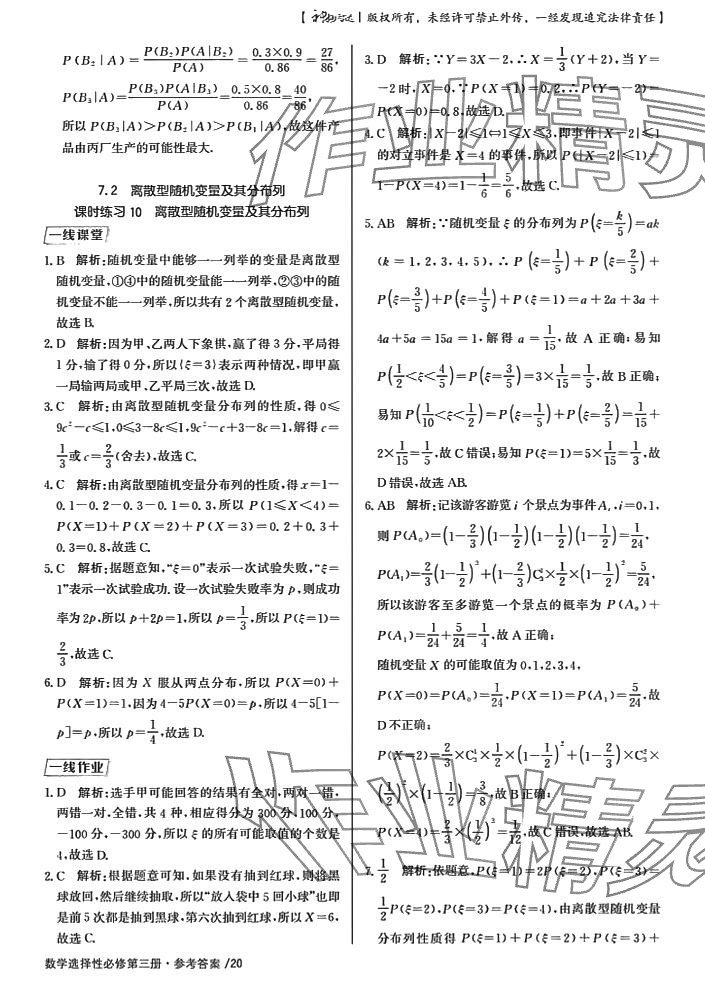 版权所有，未经许可禁止外传，一经发现追究法律责任】
P(B₂|A)=P(B₂)P(A|B₂)/P(A)=0.3×0.9/0.86=27/86,
P(B₃|A)=P(B₃)P(A|B₃)/P(A)=0.5×0.8/0.86=40/86,
所以P(B₃|A)>P(B₂|A)>P(B₁|A),故这件产
品由丙厂生产的可能性最大.
7.2 离散型随机变量及其分布列
课时练习10 离散型随机变量及其分布列
一线课堂
1.B 解析:随机变量中能够一一列举的变量是离散型
随机变量,①④中的随机变量能一一列举,②③中的随
机变量不能一一列举,所以共有2个离散型随机变量,
故选B.
2.D 解析:因为甲、乙两人下象棋,赢了得3分,平局得
1分,输了得0分,所以{ξ=3}表示两种情况,即甲赢
一局输两局或甲、乙平局三次,故选D.
3.C 解析:由离散型随机变量分布列的性质,得0≤
9c²-c≤1,0≤3-8c≤1,9c²-c+3-8c=1,解得c=
1/3或c=2/3(舍去),故选C.
4.C 解析:由离散型随机变量分布列的性质,得x=1-
0.1-0.2-0.3-0.1=0.3,所以P(1≤X<4)=
P(X=1)+P(X=2)+P(X=3)=0.2+0.3+
0.3=0.8,故选C.
5.C 解析:据题意知,“ξ=0”表示一次试验失败,“ξ=
1”表示一次试验成功.设一次试验失败率为p,则成功
率为2p,所以p+2p=1,所以p=1/3,所以P(ξ=1)=
2/3,故选C.
6.D 解析:因为X服从两点分布,所以P(X=0)+
P(X=1)=1,因为4-5P(X=0)=p,所以4-5[1-
p]=p,所以p=1/4,故选D.
一线作业
1.D 解析:选手甲可能回答的结果有全对,两对一错,
两错一对,全错,共4种,相应得分为300分,100分,
-100分,-300分,所以ξ的所有可能取值的个数是
4,故选D.
2.C 解析:根据题意可知,如果没有抽到红球,则将黑
球放回,然后继续抽取,所以“放入袋中5回小球”也即
是前5次都是抽到黑球,第六次抽到红球,所以X=6,
故选C.
3.D 解析:∵Y=3X-2,∴X=1/3(Y+2),当Y=
-2时,X=0,∵P(X=1)=0.2,∴P(Y=-2)=
P(X=0)=0.8,故选D.
4.C 解析:|X-2|≤1⇔1≤X≤3,即事件|X-2|≤1
的对立事件是X=4的事件,所以P(|X-2|≤1)=
1-P(X=4)=1-1/6=5/6,故选C.
5.AB 解析:∵随机变量ξ的分布列为P(ξ=k/5)=ak
(k=1,2,3,4,5),∴P(ξ=1/5)+P(ξ=2/5)+
P(ξ=3/5)+P(ξ=4/5)+P(ξ=1)=a+2a+3a+
4a+5a=15a=1,解得a=1/15,故A正确;易知
P(1/2<ξ<4/5)=P(ξ=3/5)=3×1/15=1/5,故B正确;
易知P(1/10<ξ<1/2)=P(ξ=1/5)+P(ξ=2/5)=1/15+
2×1/15=1/5,故C错误;易知P(ξ=1)=5×1/15=1/3,故
D错误,故选AB.
6.AB 解析:记该游客游览i个景点为事件Aᵢ,i=0,1,
则P(A₀)=(1-2/3)(1-1/2)(1-1/2)(1-1/2)=1/24,
P(A₁)=2/3(1-1/2)³+(1-2/3)C₃¹×1/2×(1-1/2)²=5/24,
所以该游客至多游览一个景点的概率为P(A₀)+
P(A₁)=1/24+5/24=1/4,故A正确;
随机变量X的可能取值为0,1,2,3,4,
P(X=0)=P(A₀)=1/24,P(X=1)=P(A₁)=5/24,故
D不正确;
P(X=2)=2/3×C₃¹×1/2×(1-1/2)²+(1-2/3)×C₃²×
(1/2)²×(1-1/2)=3/8,故B正确;
P(X=4)=2/3×(1/2)³=1/12,故C错误,故选AB.
7.1/2 解析:依题意,P(ξ=1)=2P(ξ=2),P(ξ=3)=
1/2P(ξ=2),P(ξ=3)=P(ξ=4),由离散型随机变量
分布列性质得P(ξ=1)+P(ξ=2)+P(ξ=3)+
数学选择性必修第三册·参考答案/20
作业精灵
作业精灵